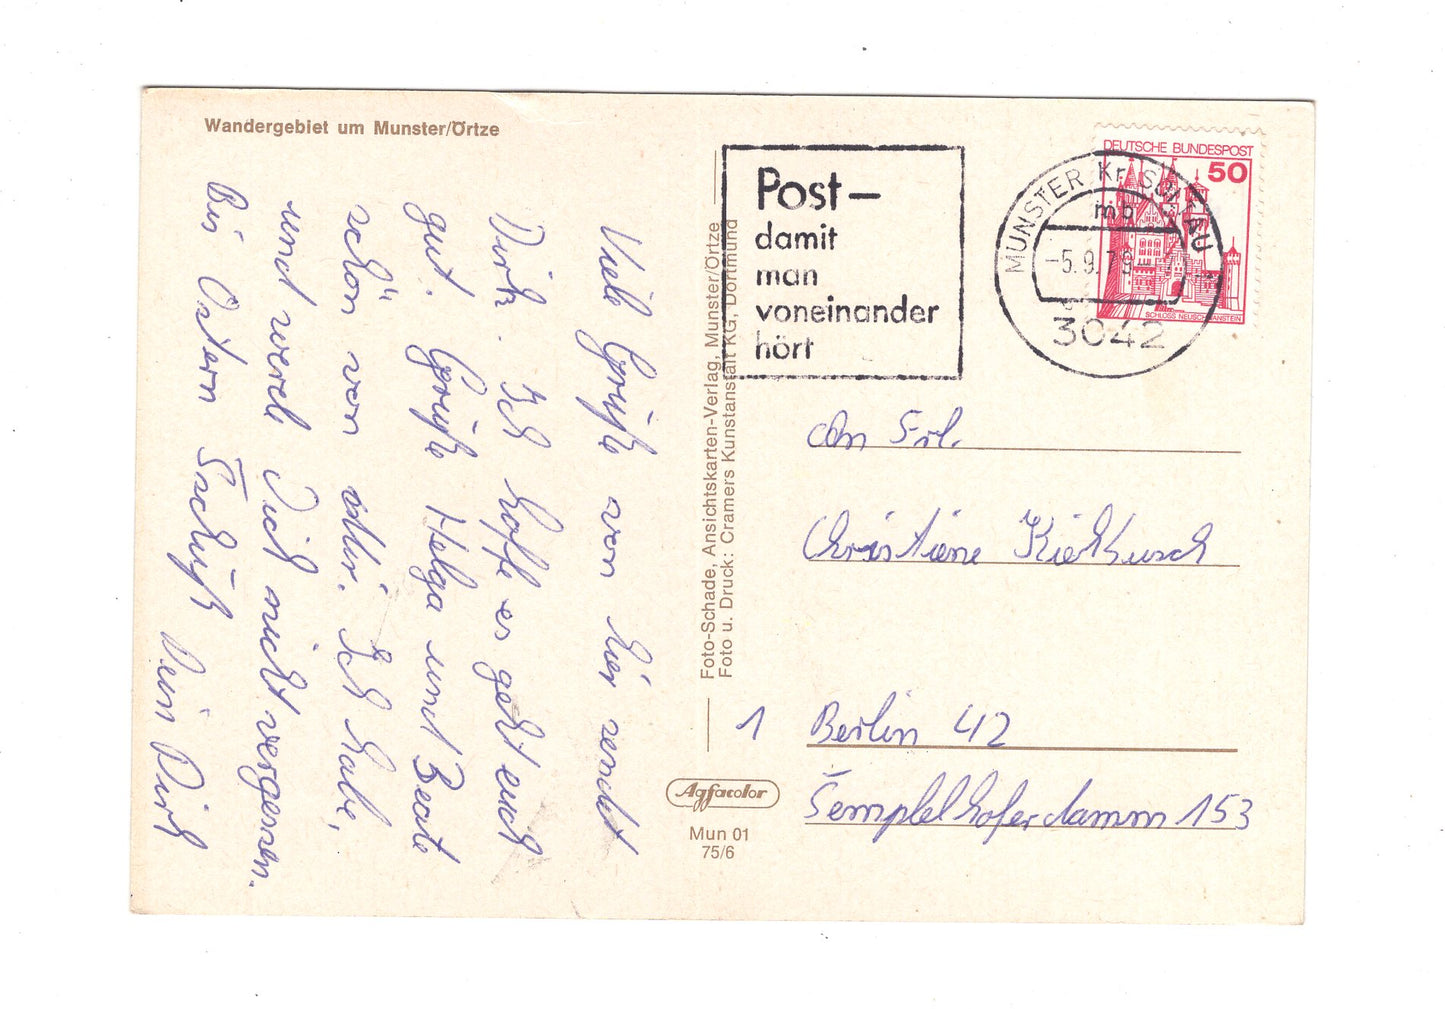 Wandergebiet um Munster/Örtze
Viele Grüße von hier sendet
Dirk. Ich hoffe es geht euch
gut. Grüße Helga und Beate
schön von Mir. Ich habe,
und werde Dich nicht vergessen.
Bis Ostern Tschüß Dein Dirk
Foto-Schade, Ansichtskarten-Verlag, Munster/Örtze
Foto u. Druck: Cramers Kunstanstalt KG, Dortmund
Agfacolor
Mun 01
75/6
Post –
damit
man
voneinander
hört
MUNSTER, Kr. SOLTAU
mb
-5.9.79
3042
DEUTSCHE BUNDESPOST
50
SCHLOSS NEUSCHWANSTEIN
An Frl.
Christiene
1 Berlin 42
Templelhoferdamm 153